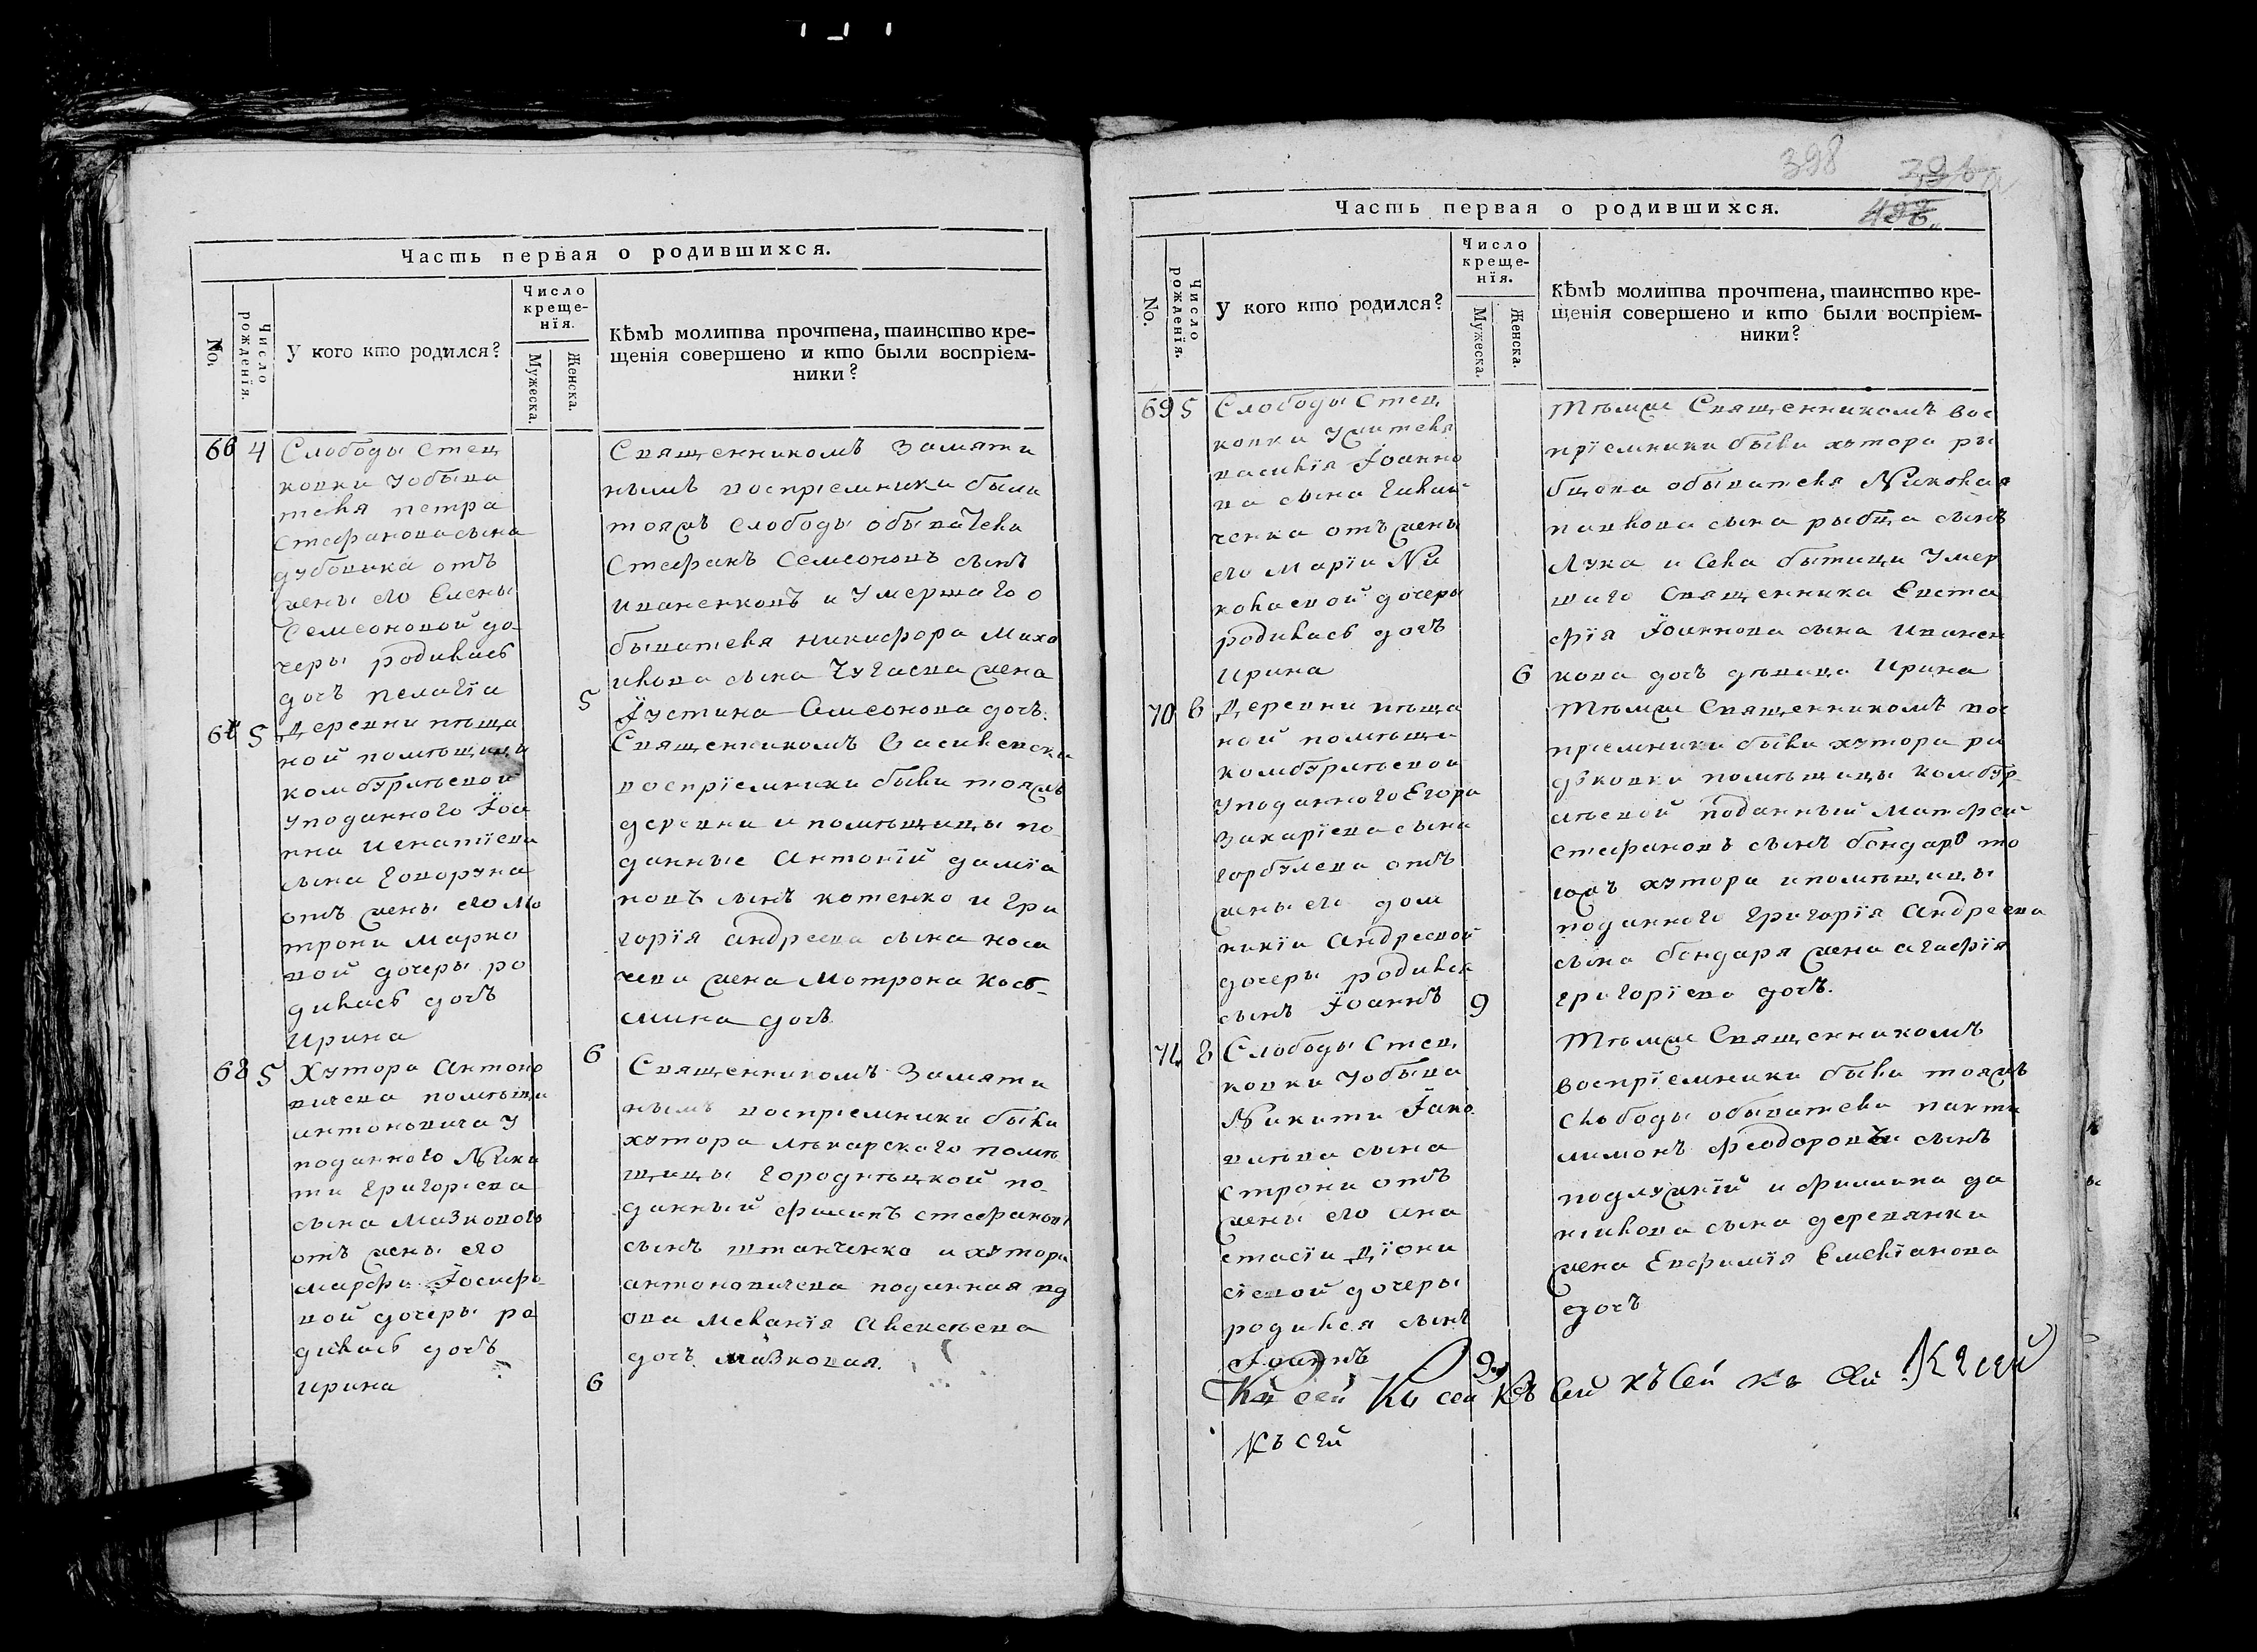 Часть первая о родившихся.
No.
Число рожденїя.
У кого кто родился?
Число
креще-
нїя.
Мужеска.
Женска.
Кѣмъ молитва прочтена, таинство кре-
щенїя совершено и кто были воспрїем-
ники?
66 4 Слободы Стец
ковки у обыва
теля петра
Стефанова сына
дубовика отъ
жены его Елены
Семеоновой до
черы родилась
дочь пелагїа
5
Священникомъ Замяти
нымъ воспрїемники были
тояжъ слободы обыватели
Стефанъ Семеоновъ сынъ
иваненковъ и умершаго о
бывателя никифора Миха
илова сына Чугаева жена
Їустина Симеонова дочь.
67 5 Деревни пѣща
ной помѣщицы
комбурлѣевой
у поданного Їоа
нна Игнатїева
сына говоруна
отъ жены его Мо
трони Марко
вой дочеры ро
дилась дочъ
Ирина
6
Священникомъ Василевски
воспрїемники были тояжъ
деревни и помѣщицы по
данные Антонїй дамїа
новъ сынъ котенко и гри
горїя андреева сына носа
чева жена Мотрона Кось-
мина дочь
68 5 Хутора Антоно
вичева помѣщи
антоновича у
поданного Ники
ти Григорїева
сына Мазкового
отъ жены его
марфи Їосифо
вой дочеры ро
дилась дочь
ирина
6
Священникомъ Замяти
нымъ воспрїемники были
хутора лѣкарского помѣ
щицы городнѣцкой по
данный филипъ стефановъ
сынъ штанченко и хутора
антоновичева поданная вд
ова Меланїя Алексѣева
дочь мазковая.
398
Часть первая о родившихся.
No.
Число рожденїя.
У кого кто родился?
Число
креще-
нїя.
Мужеска.
Женска.
Кѣмъ молитва прочтена, таинство кре-
щенїя совершено и кто были воспрїем-
ники?
69 5 Слободы Стец
ковки учителя
василїя Їоанно
ва сына
ченка отъ жены
его Марїи Ни
колаевой дочеры
родилась дочъ
Ирина
6
Тѣмже Священникомъ вос
прїемники были хутора ры
бцова обывателя Николая
павлова сына рыбца сынъ
Лука и села бытици умер
шаго Священника Евста
фїя Їоаннова сына Иванен
кова дочь дѣвица Ирина
70 6 Деревни пѣща
ной помѣщи
комбурлѣевой
у поданного Егора
Захарїева сына
горбулева отъ
жены его дом
никїи Андреевой
дочеры родился
сынъ Їоаннъ
9
Тѣмже Священникомъ вос
прїемники были хутора ра
дковки помѣщицы комбур
лѣевой поданный Матфей
стефановъ сынъ бондарь то
гожъ хутора и помѣщицы
поданного григорїя андреева
сына бондаря жена агафїя
григорїева дочь.
71 8 Слободы Стец
ковки у обыва
Никити Їако
влѣва сына
строки отъ
жены его ана
стасїи Дїони
сїевой дочеры
родился сынъ
Їоаннъ
9
Тѣмже Священникомъ
воспрїемники были тояжъ
слободы обыватели панте
лимонъ феодоровъ сынъ
подлужнїй и филипа да
нилова сына деревянки
жена Евфимїя Емелїанова
дочь
Къ сей Къ сей Къ Сей къ Сей къ Сей Къ сей
Къ сей